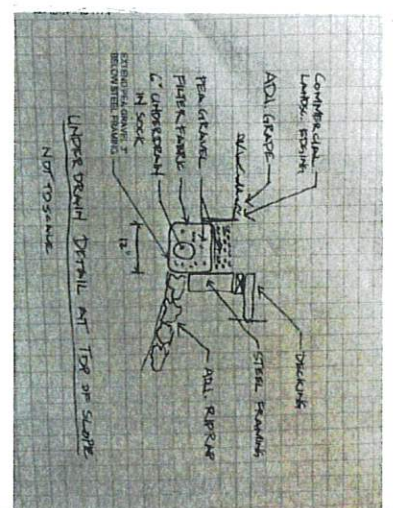 COMMERCIAL
LANDSC. EDGING
ADJ. GRADE
PEA GRAVEL
FILTER FABRIC
6" UNDERDRAIN
IN SOCK
EXTEND PEA GRAVEL 3"
BELOW STEEL FRAMING
12"
DECKING
STEEL FRAMING
ADJ. RIPRAP
UNDERDRAIN DETAIL AT TOP OF SLOPE
NOT TO SCALE